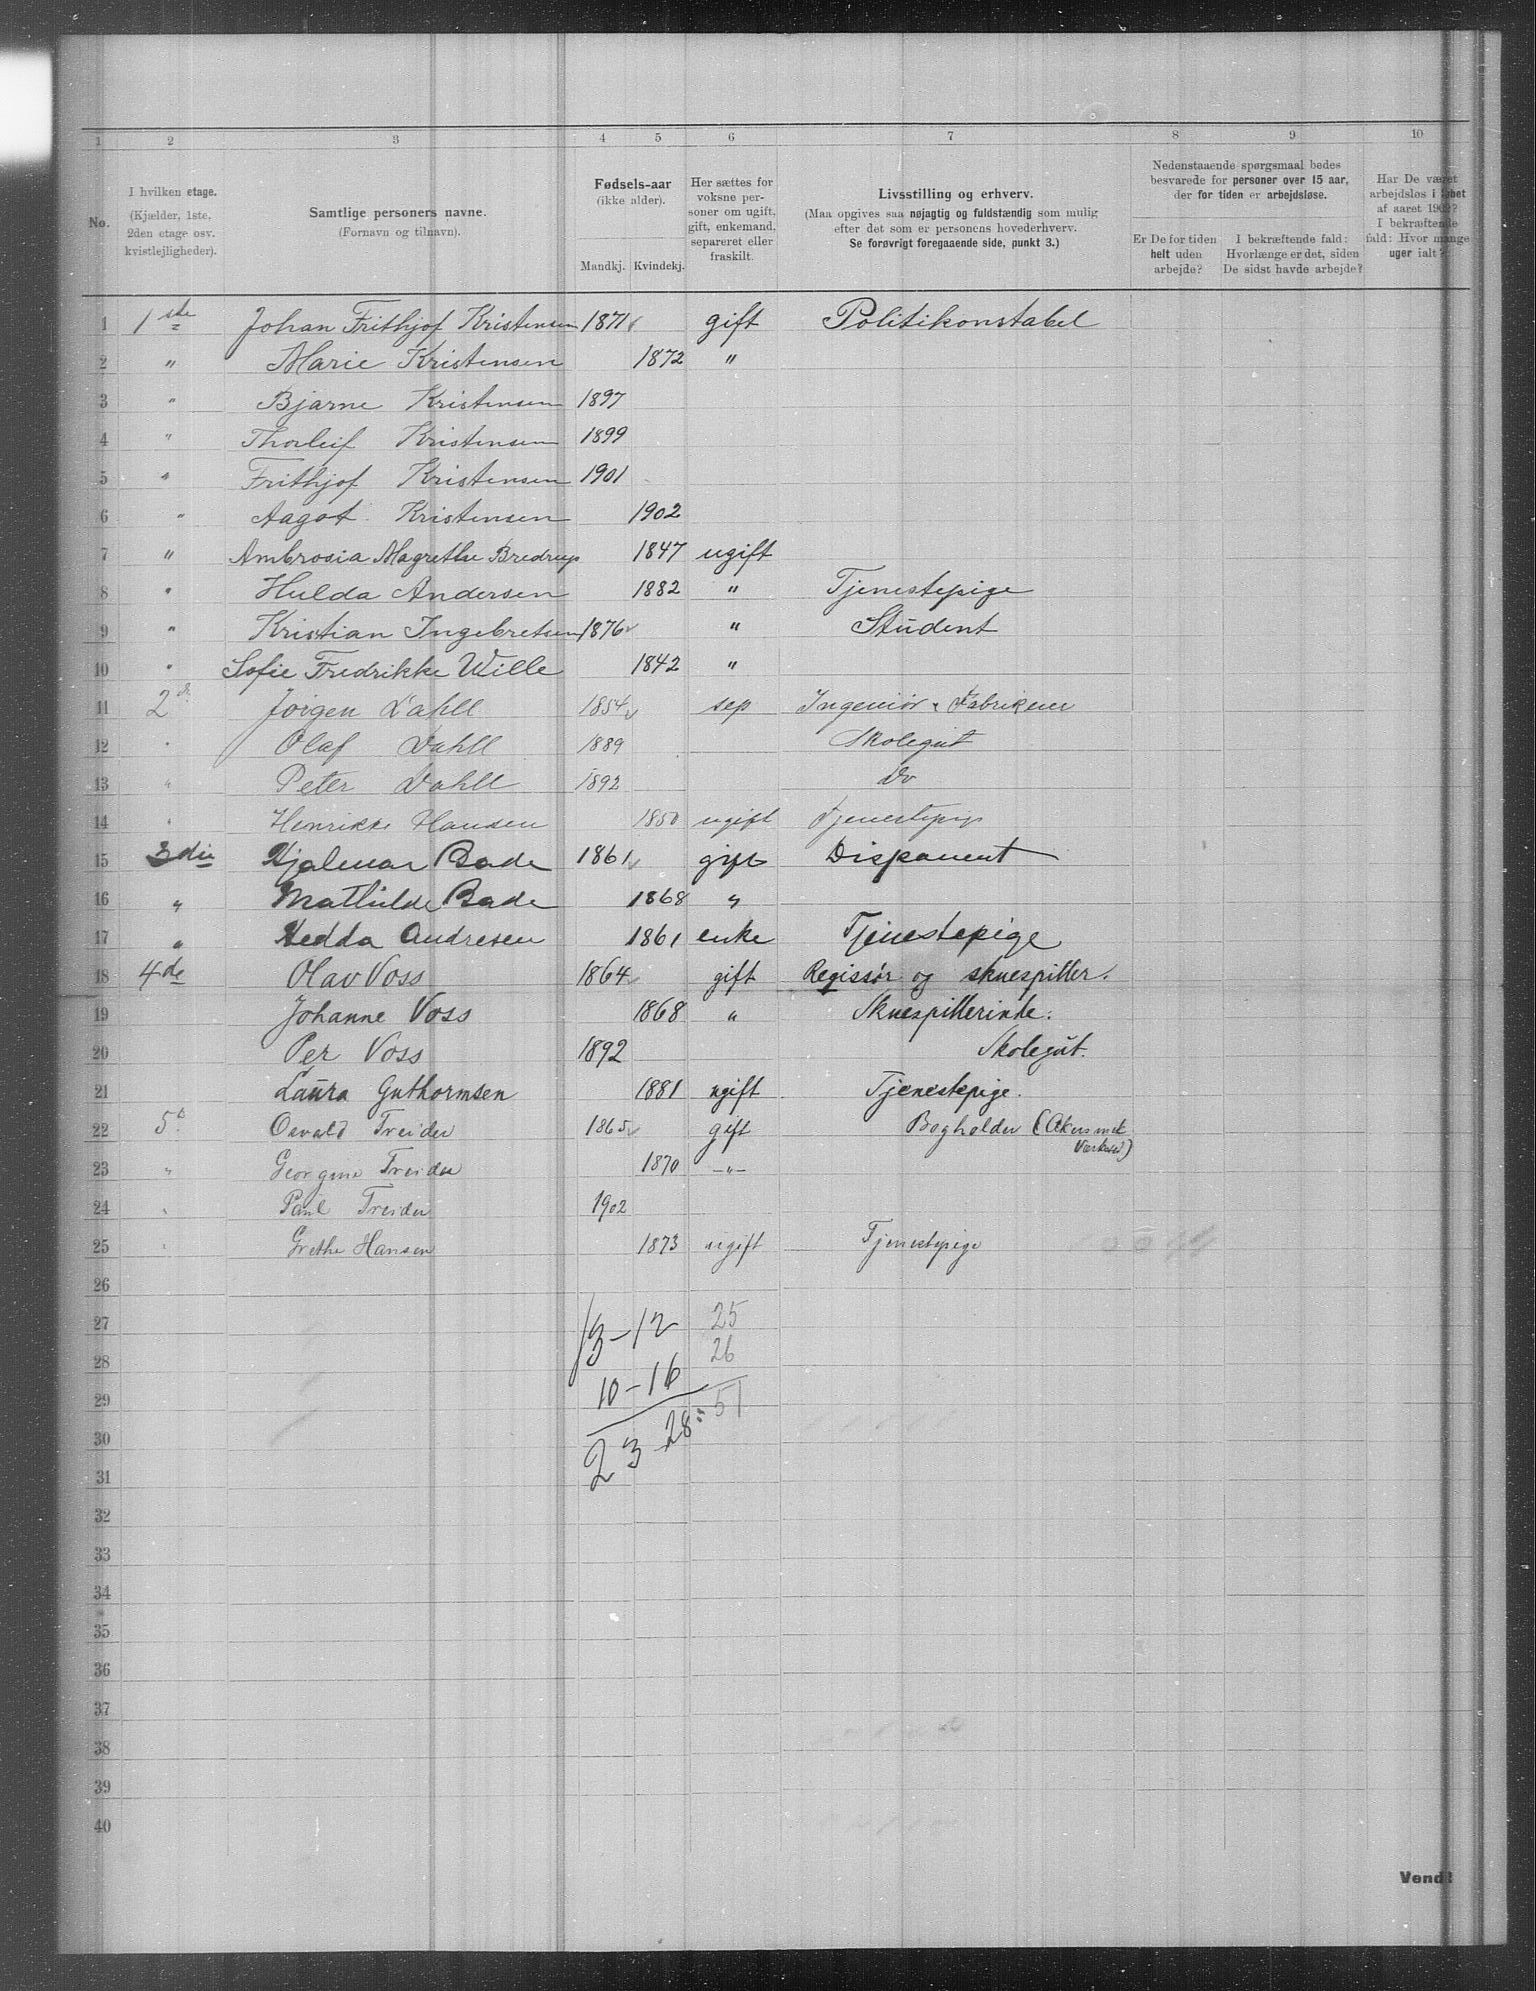 1 2 3 4 5 6 7 8 9 10
No.
I hvilken etage. (Kjælder, 1ste, 2den etage osv. kvistlejligheder).
Samtlige personers navne. (Fornavn og tilnavn).
Fødsels-aar (ikke alder). Mandkj. Kvindekj.
Her sættes for voksne personer om ugift, gift, enkemand, separeret eller fraskilt.
Livsstilling og erhverv. (Maa opgives saa nøjagtig og fuldstændig som mulig efter det som er personens hovederhverv. Se forøvrigt foregaaende side, punkt 3.)
Nedenstaaende spørgsmaal bedes besvarede for personer over 15 aar, der for tiden er arbejdsløse.
Er De for tiden helt uden arbejde?
I bekræftende fald: Hvorlænge er det, siden De sidst havde arbejde?
Har De været arbejdsløs i løbet af aaret 1902? I bekræftende fald: Hvor mange uger ialt?
1 1ste Johan Frithjof Kristensen 1871 gift Politikonstabel
2 " Marie Kristensen 1872 "
3 " Bjarne Kristensen 1897
4 " Thorleif Kristensen 1899
5 " Frithjof Kristensen 1901
6 " Aagot Kristensen 1902
7 " Ambrosia Magrethe Bredrup 1847 ugift
8 " Hulda Andersen 1882 " Tjenestepige
9 " Kristian Ingebretsen 1876 " Student
10 " Sofie Fredrikke Wille 1842 "
11 2 Jørgen Dahll 1854 sep Ingeniør & Fabrikeier
12 " Olaf Dahll 1889 Skolegut
13 " Peter Dahll 1892 Do
14 " Henrikke Hansen 1850 ugift Tjenestepige
15 3die Hjalmar Bade 1861 gift Disponent
16 " Mathilde Bade 1868 "
17 " Hedda Andresen 1861 enke Tjenestepige
18 4de Olav Voss 1864 gift Regissør og skuespiller.
19 Johanne Voss 1868 " Skuespillerinde.
20 Per Voss 1892 Skolegut.
21 Laura Guthormsen 1881 ugift Tjenestepige.
22 5 Osvald Treider 1865 gift Bogholder (Akers mek Værksted)
23 " Georgine Treider 1870 -"-
24 " Paul Treider 1902
25 " Grethe Hansen 1873 ugift Tjenestepige
26
27 13-12 25
28 26
29 10-16
30 23 28=51
31
32
33
34
35
36
37
38
39
40
Vend!